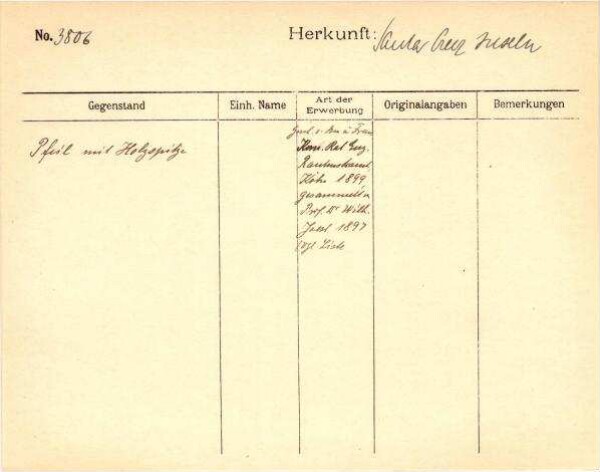 No. 3806
Herkunft: Santa Cruz Inseln
Gegenstand
Einh. Name
Art der Erwerbung
Originalangaben
Bemerkungen
Pfeil mit Holzspitze
Kom. Rat Eug.
Rautenstrauch
Köln 1899
gesammelt v.
Prof. Dr Wilh.
Joest 1897
vgl. Liste